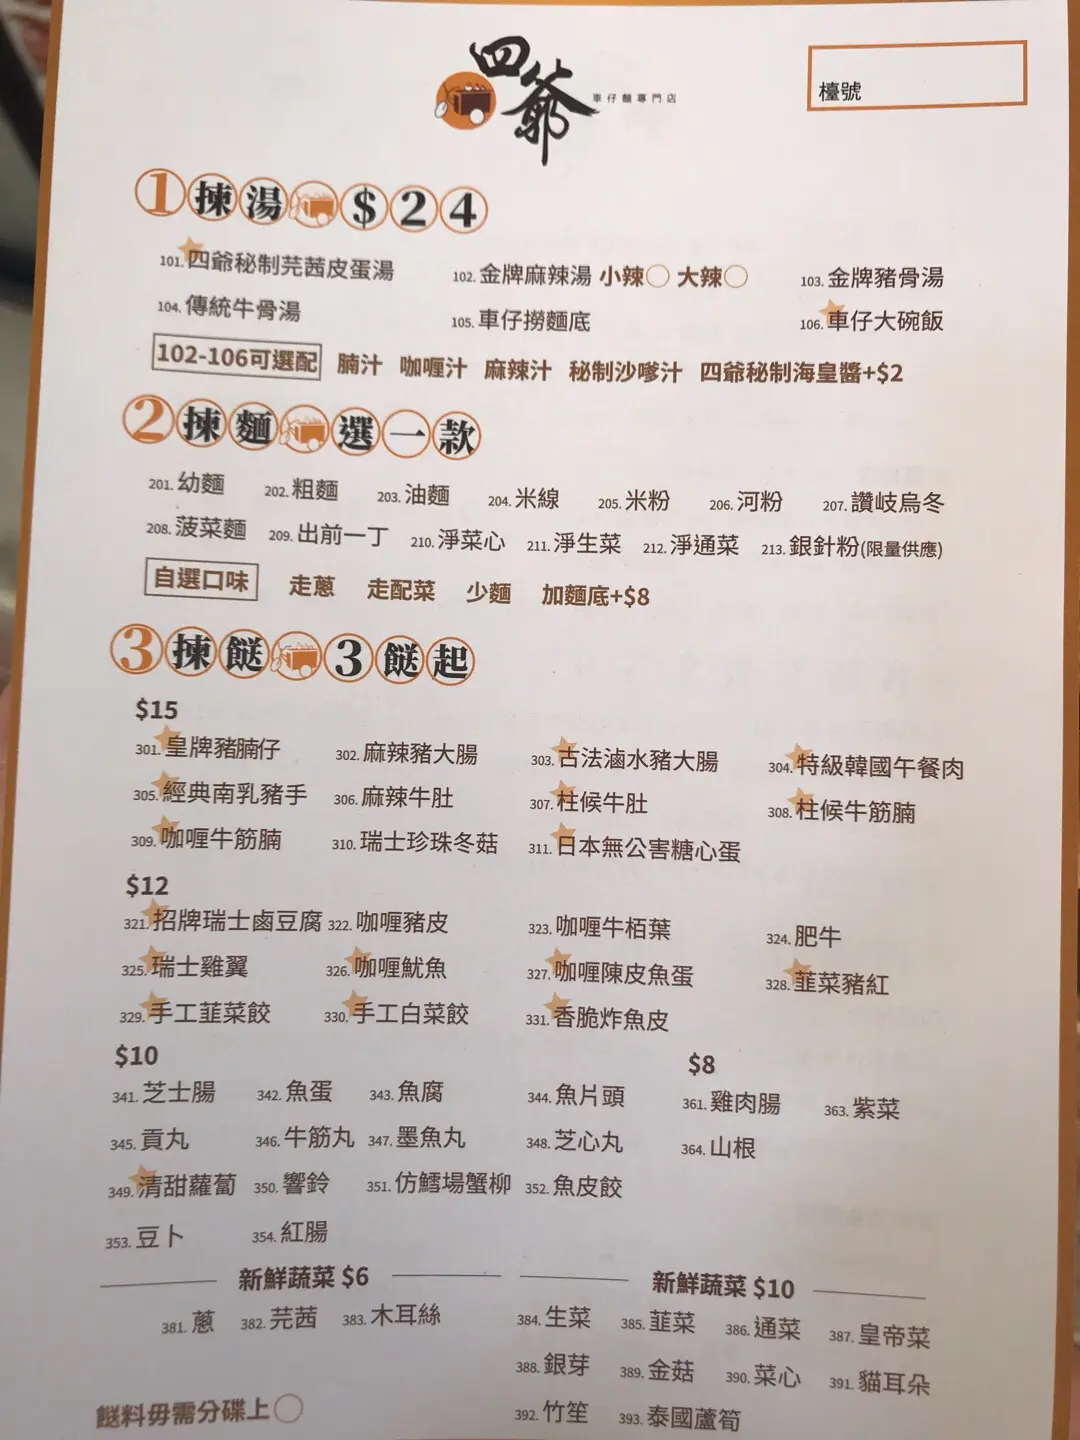 四爺 車仔麵專門店
檯號
1 揀湯 $24
101. 四爺秘制芫茜皮蛋湯 102. 金牌麻辣湯 小辣○ 大辣○ 103. 金牌豬骨湯
104. 傳統牛骨湯 105. 車仔撈麵底 106. 車仔大碗飯
102-106可選配 腩汁 咖喱汁 麻辣汁 秘制沙嗲汁 四爺秘制海皇醬+$2
2 揀麵 選一款
201. 幼麵 202. 粗麵 203. 油麵 204. 米線 205. 米粉 206. 河粉 207. 讚岐烏冬
208. 菠菜麵 209. 出前一丁 210. 淨菜心 211. 淨生菜 212. 淨通菜 213. 銀針粉(限量供應)
自選口味 走蔥 走配菜 少麵 加麵底+$8
3 揀餸 3餸起
$15
301. 皇牌豬腩仔 302. 麻辣豬大腸 303. 古法滷水豬大腸 304. 特級韓國午餐肉
305. 經典南乳豬手 306. 麻辣牛肚 307. 柱候牛肚 308. 柱候牛筋腩
309. 咖喱牛筋腩 310. 瑞士珍珠冬菇 311. 日本無公害糖心蛋
$12
321. 招牌瑞士鹵豆腐 322. 咖喱豬皮 323. 咖喱牛栢葉 324. 肥牛
325. 瑞士雞翼 326. 咖喱魷魚 327. 咖喱陳皮魚蛋 328. 韮菜豬紅
329. 手工韮菜餃 330. 手工白菜餃 331. 香脆炸魚皮
$10 $8
341. 芝士腸 342. 魚蛋 343. 魚腐 344. 魚片頭 361. 雞肉腸 363. 紫菜
345. 貢丸 346. 牛筋丸 347. 墨魚丸 348. 芝心丸 364. 山根
349. 清甜蘿蔔 350. 響鈴 351. 仿鱈場蟹柳 352. 魚皮餃
353. 豆卜 354. 紅腸
新鮮蔬菜 $6 新鮮蔬菜 $10
381. 蔥 382. 芫茜 383. 木耳絲 384. 生菜 385. 韮菜 386. 通菜 387. 皇帝菜
388. 銀芽 389. 金菇 390. 菜心 391. 貓耳朵
392. 竹笙 393. 泰國蘆筍
餸料毋需分碟上○